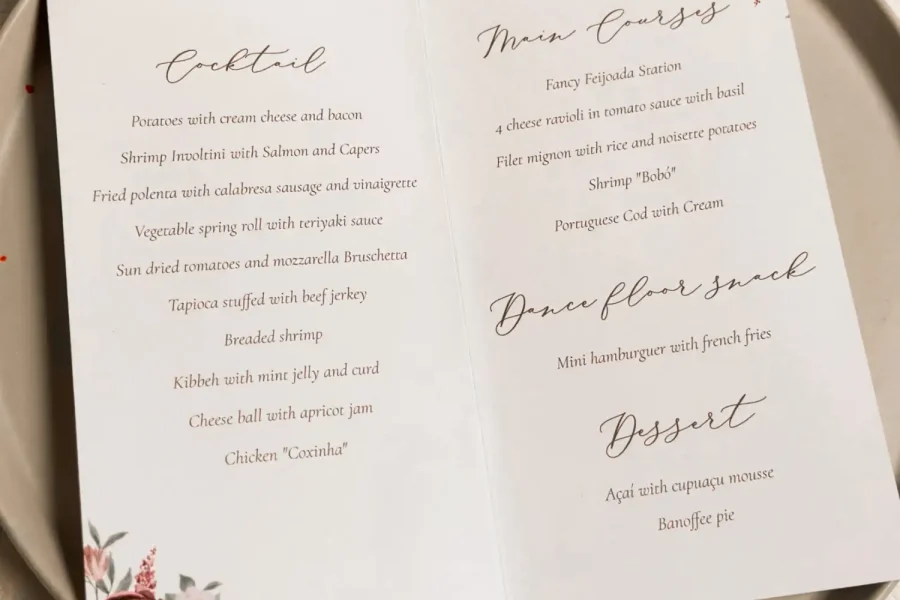 Cocktail
Potatoes with cream cheese and bacon
Shrimp Involtini with Salmon and Capers
Fried polenta with calabresa sausage and vinaigrette
Vegetable spring roll with teriyaki sauce
Sun dried tomatoes and mozzarella Bruschetta
Tapioca stuffed with beef jerkey
Breaded shrimp
Kibbeh with mint jelly and curd
Cheese ball with apricot jam
Chicken "Coxinha"
Main Courses
Fancy Feijoada Station
4 cheese ravioli in tomato sauce with basil
Filet mignon with rice and noisette potatoes
Shrimp "Bobó"
Portuguese Cod with Cream
Dance floor snack
Mini hamburguer with french fries
Dessert
Açaí with cupuaçu mousse
Banoffee pie